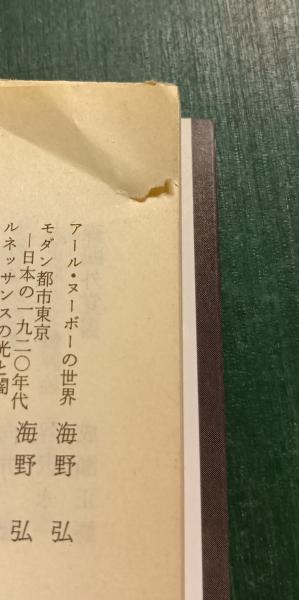 アール・ヌーボーの世界 海野 弘
モダン都市東京
―日本の一九二〇年代 海野 弘
ルネッサンスの光と闇